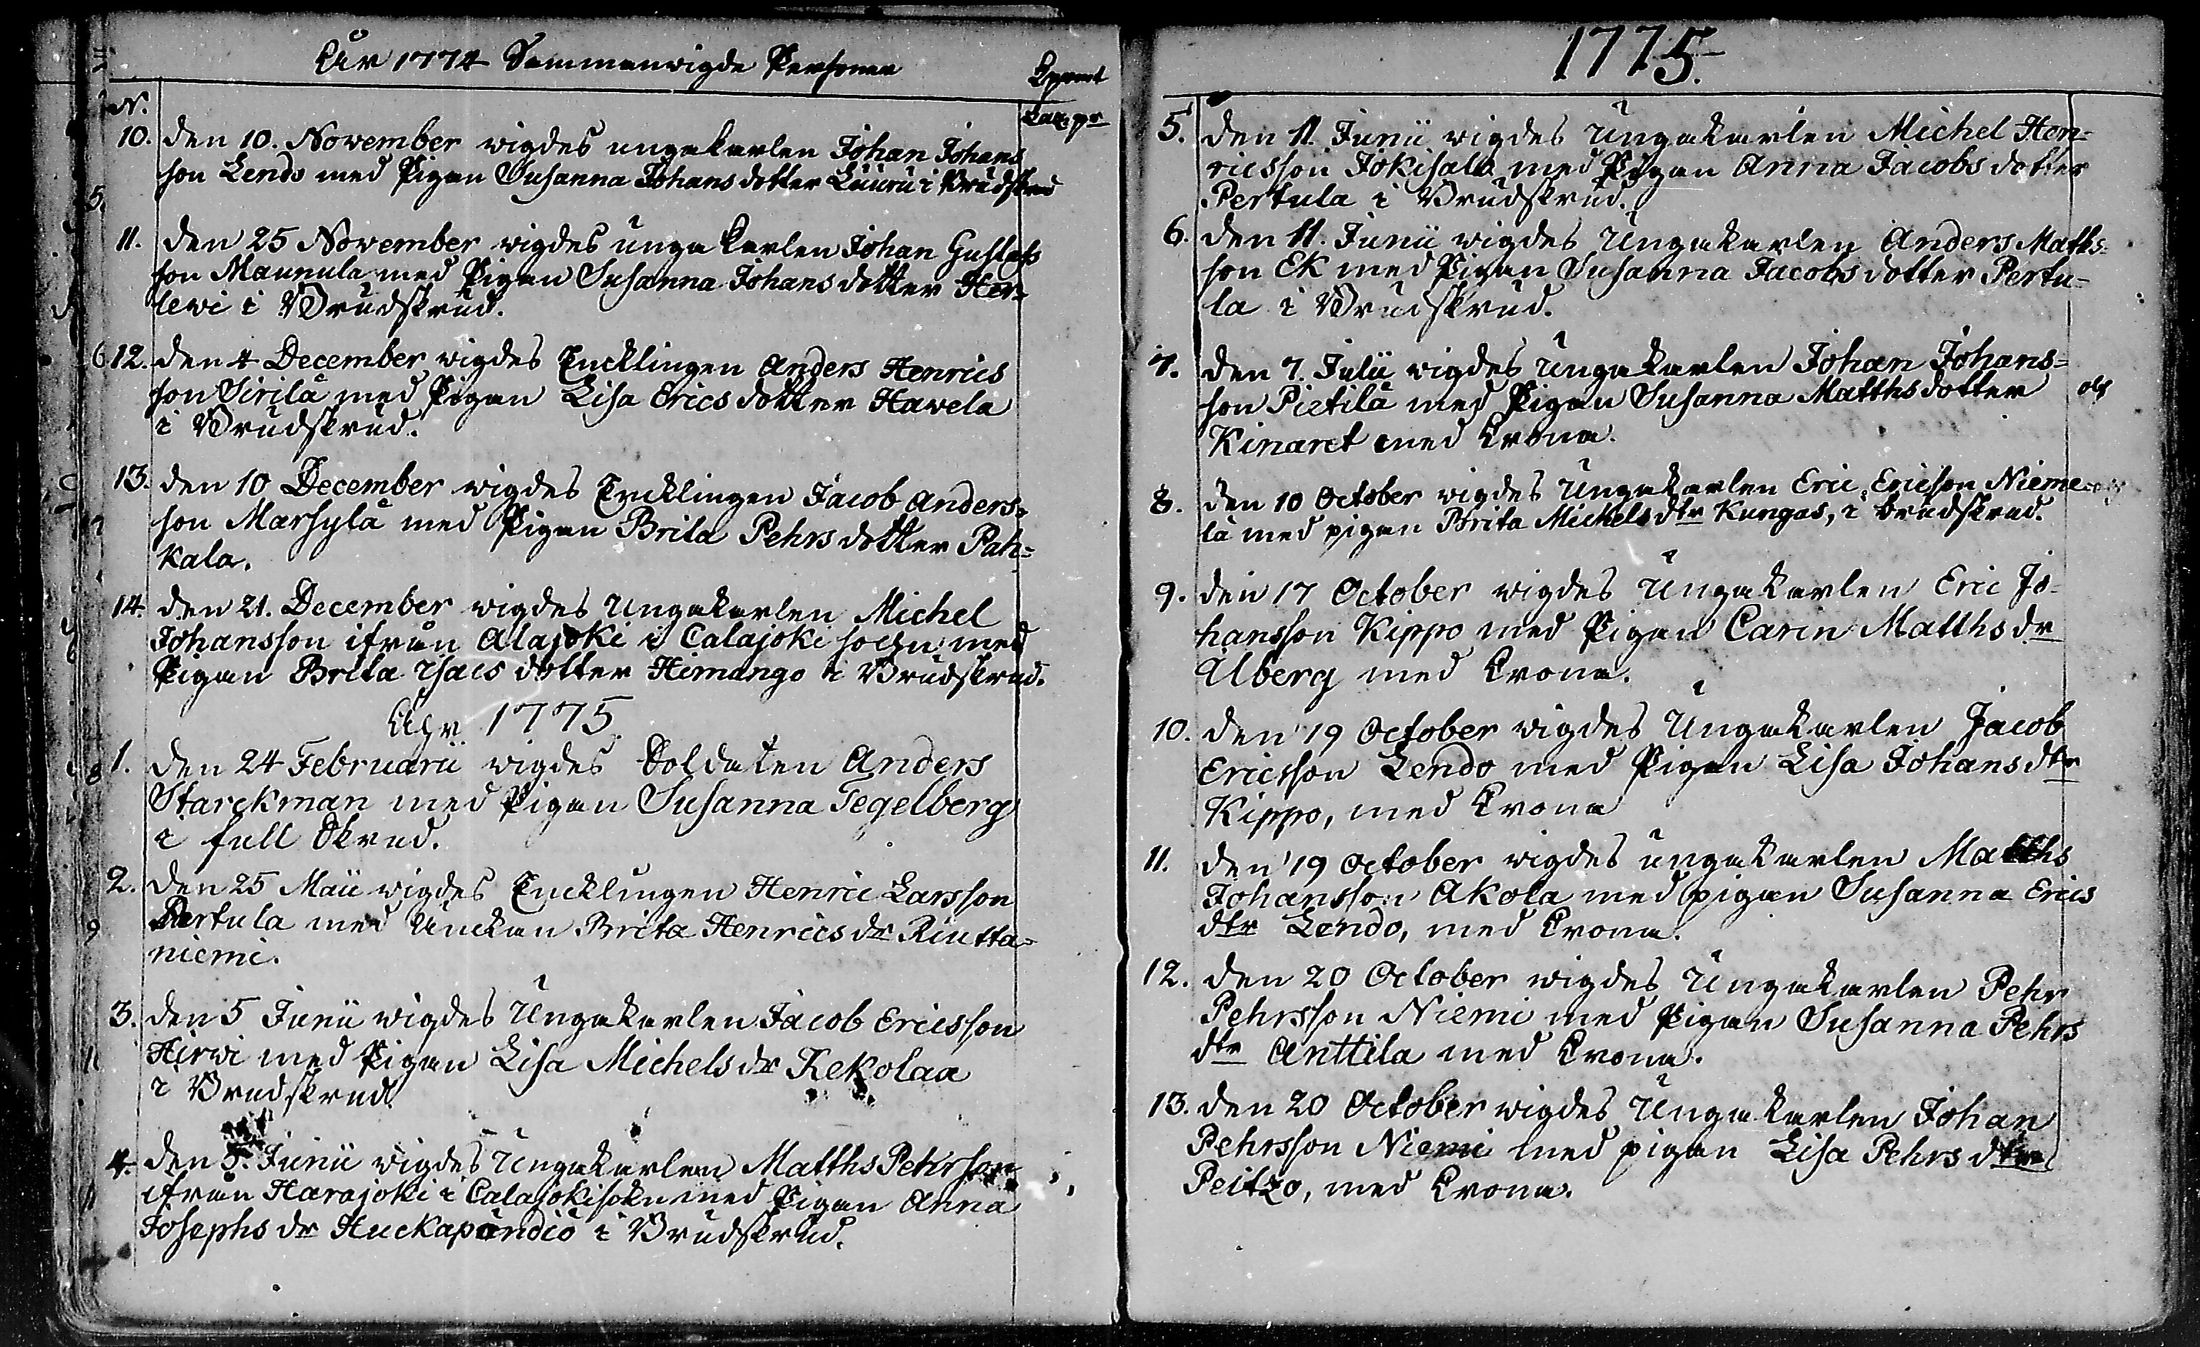 Åhr 1774 Sammanwigde Personer
N.
10. den 10. November wigdes ungakarlen Johan Johans
son Lendo med Pigan Susanna Johans dotter Luuru i Brudskrud
11. den 25 November wigdes unga karlen Johan Gustafs
son Maunula med Pigan Susanna Johans dotter Her-
lewi i Brudskrud.
12. den 4 December wigdes Encklingen Anders Henrics
son Sirilä med Pigan Lisa Erics dotter Havela
i Brudskrud.
13. den 10 December wigdes Encklingen Jacob Anders-
son Marsylä med Pigan Brita Pehrs dotter Pah-
kala.
14. den 21. December wigdes Ungakarlen Michel
Johansson ifrån Alajoki i Calajoki sokn med
Pigan Brita Isacs dotter Himango i Brudskrud.
Åhr 1775
1. den 24 Februarii wigdes Soldaten Anders
Starckman med Pigan Susanna Tegelberg
i full Skrud.
2. den 25 Maii wigdes Encklingen Henric Larsson
Pertula med Änckan Brita Henrics dr Riutta-
niemi.
3. den 5 Junii wigdes Ungakarlen Jacob Ericsson
Hirwi med Pigan Lisa Michels dr Kekolax
i Brudskrud
4. den 5. Junii wigdes Ungakarlen Matths Pehrsson
ifrån Harajoki i Calajokisokn med Pigan Anna
Josephs dr Huckapöndiö i Brudskrud.
1775.
5. den 11. Junii wigdes Ungakarlen Michel Hen-
ricsson Jokisalo med Pigan Anna Jacobs dotter
Pertula i Brudskrud.
6. den 11. Junii wigdes Ungakarlen Anders Matths-
son Ek med Pigan Susanna Jacobs dotter Pertu-
la i Brudskrud.
7. den 7. Julii wigdes Ungakarlen Johan Johans-
son Pietilä med Pigan Susanna Matths dotter
Kinaret med Krona.
8. den 10 October wigdes Ungakarlen Eric Ericson Nieme-
lä med pigan Brita Michels dtr Kungas, i brudskrud.
9. den 17 October wigdes Ungakarlen Eric Jo-
hansson Kippo med Pigan Carin Matths dr
Ulberg med Krona.
10. den 19 October wigdes Ungakarlen Jacob
Ericsson Lendo med Pigan Lisa Johans dtr
Kippo, med Krona
11. den 19 October wigdes ungakarlen Matths
Johansson Akola med pigan Susanna Erics
dtr Lendo, med Krona.
12. den 20 October wigdes Ungakarlen Pehr
Pehrsson Niemi med Pigan Susanna Pehrs
dtr Anttila med Krona.
13. den 20 October wigdes Ungakarlen Johan
Pehrsson Niemi med pigan Lisa Pehrs dtr
Peitzo, med Krona.